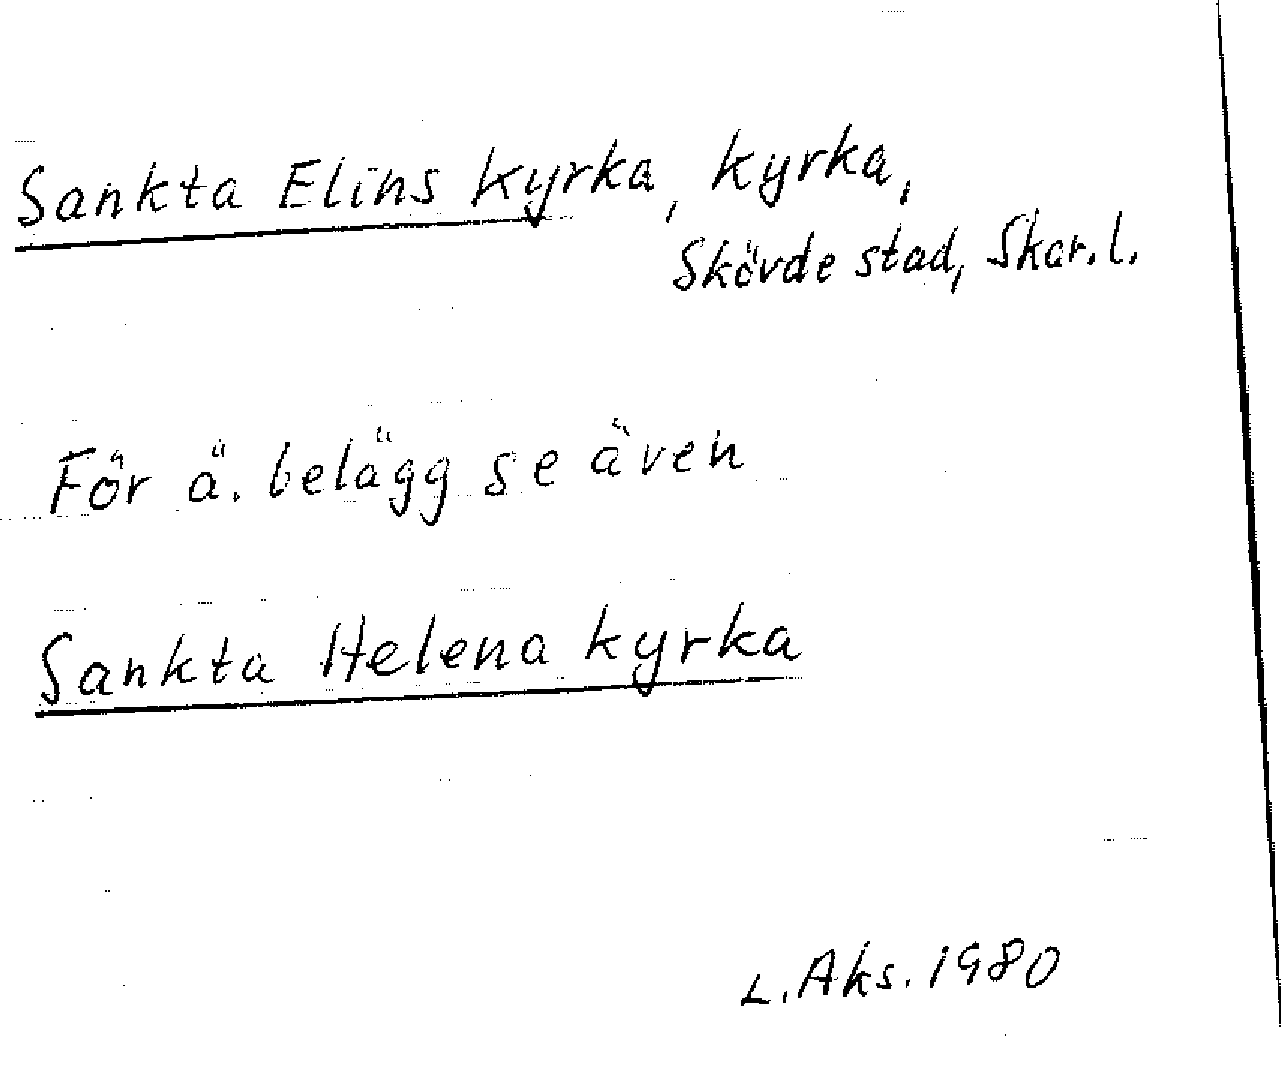 Sankta Elins kyrka, kyrka,
Skövde stad, Skar. l.
För ä. belägg se även
Sankta Helena kyrka
L. Aks. 1980